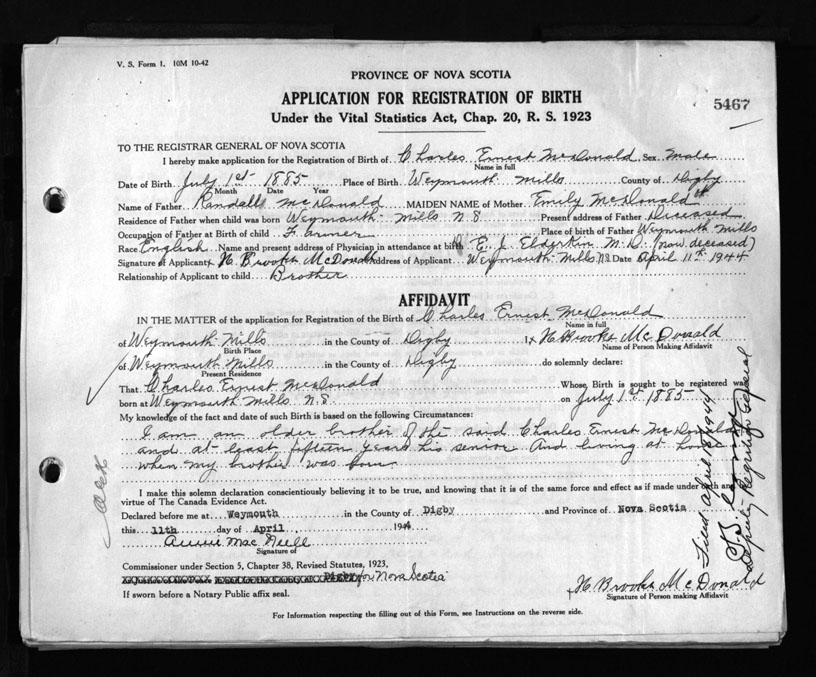 V. S. Form 1. 10M 10-42
PROVINCE OF NOVA SCOTIA
APPLICATION FOR REGISTRATION OF BIRTH
5467
Under the Vital Statistics Act, Chap. 20, R. S. 1923
TO THE REGISTRAR GENERAL OF NOVA SCOTIA
I hereby make application for the Registration of Birth of Charles Ernest McDonald Sex Male
Name in full
Date of Birth July 1st 1885 Place of Birth Weymouth Mills County of Digby
Month Date Year
Name of Father Randall McDonald MAIDEN NAME of Mother Emily McDonald
Residence of Father when child was born Weymouth Mills N.S Present address of Father Diseased
Occupation of Father at Birth of child Farmer Place of Birth of Father Weymouth Mills
Race English Name and present address of Physician in attendance at birth E. J. Elderkin M.D. (now deceased)
Signature of Applicant x H. Brooks McDonald Address of Applicant Weymouth Mills N.S Date April 11th 1944
Relationship of Applicant to child Brother
AFFIDAVIT
IN THE MATTER of the application for Registration of the Birth of Charles Ernest McDonald
Name in full
of Weymouth Mills in the County of Digby I, x H Brooks McDonald
Birth Place Name of Person Making Affidavit
of Weymouth Mills in the County of Digby do solemnly declare:
Present Residence
That Charles Ernest McDonald Whose Birth is sought to be registered was
born at Weymouth Mills N.S on July 1st 1885
My knowledge of the fact and date of such Birth is based on the following Circumstances:
I am an older brother of the said Charles Ernest McDonald
and at least fifteen years his senior And living at home
when my brother was born
I make this solemn declaration conscientiously believing it to be true, and knowing that it is of the same force and effect as if made under oath and
virtue of The Canada Evidence Act.
Declared before me at Weymouth in the County of Digby and Province of Nova Scotia
this 11th day of April 1944
Annie Mac Neill
Signature of
Commissioner under Section 5, Chapter 38, Revised Statutes, 1923,
Digby for Nova Scotia
If sworn before a Notary Public affix seal.
x H Brooks McDonald
Signature of Person making Affidavit
For Information respecting the filling out of this Form, see Instructions on the reverse side.
Filed April 18/1944
Deputy Registrar General